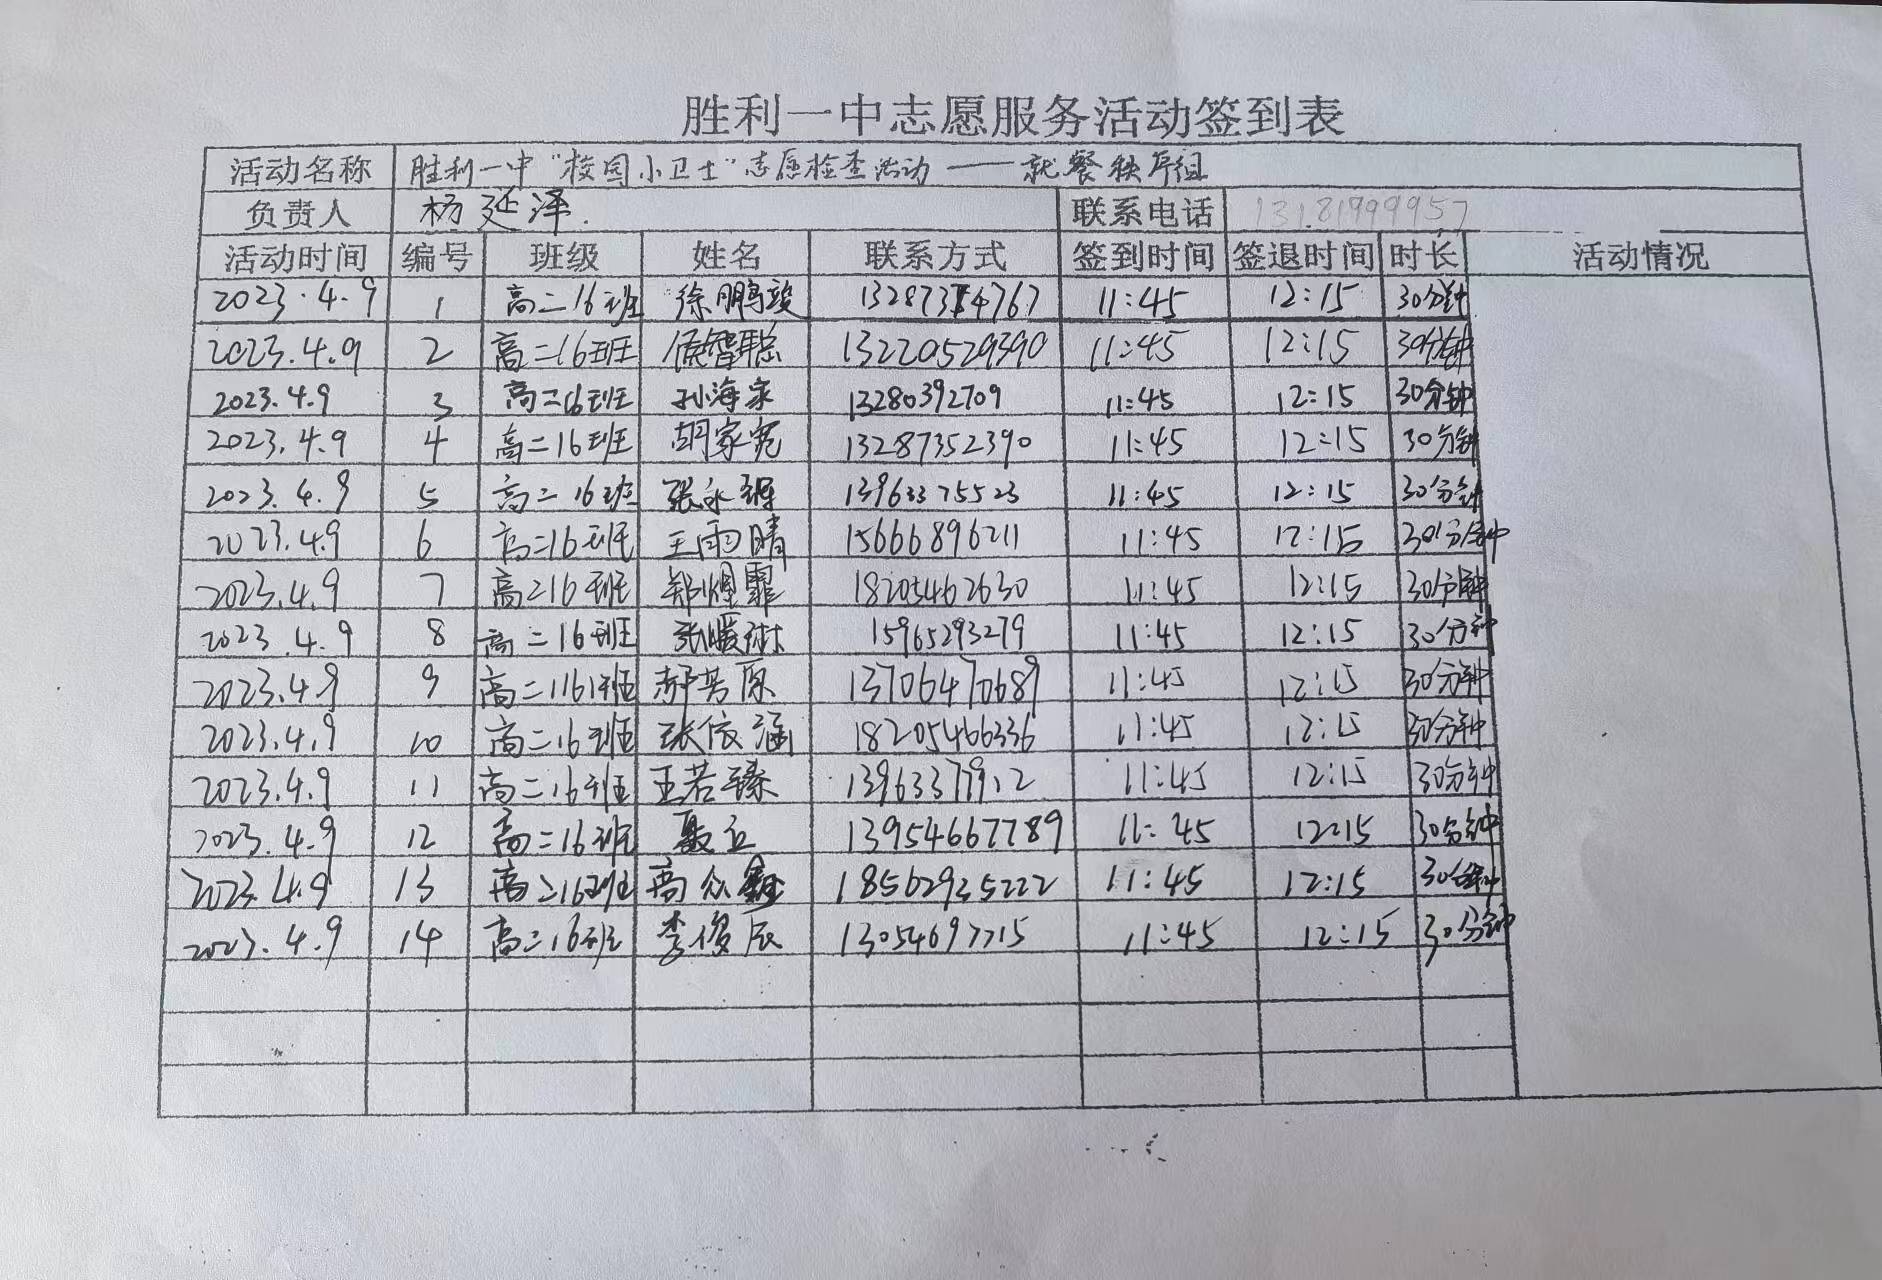 胜利一中志愿服务活动签到表
活动名称 胜利一中"校园小卫士"志愿检查活动——就餐秩序组
负责人 杨延泽 联系电话 13181999957
活动时间 编号 班级 姓名 联系方式 签到时间 签退时间 时长 活动情况
2023.4.9 1 高二16班 徐鹏竣 11:45 12:15 30分钟
2023.4.9 2 高二16班 侯智聪 13220529390 11:45 12:15 30分钟
2023.4.9 3 高二16班 孙海宗 13280392709 11:45 12:15 30分钟
2023.4.9 4 高二16班 胡家宛 13287352390 11:45 12:15 30分钟
2023.4.9 5 高二16班 13963375523 11:45 12:15 30分钟
2023.4.9 6 高二16班 王雨晴 15666896211 11:45 12:15 30分钟
2023.4.9 7 高二16班 郑煜霏 18205462630 11:45 12:15 30分钟
2023.4.9 8 高二16班 15965293279 11:45 12:15 30分钟
2023.4.9 9 高二16班 郝芳原 13706470689 11:45 12:15 30分钟
2023.4.9 10 高二16班 张依涵 18205466336 11:45 12:15 30分钟
2023.4.9 11 高二16班 王若臻 11:45 12:15 30分钟
2023.4.9 12 高二16班 13954667789 11:45 12:15 30分钟
2023.4.9 13 高二16班 高众鑫 18562935222 11:45 12:15 30分钟
2023.4.9 14 高二16班 李俊辰 13054697715 11:45 12:15 30分钟